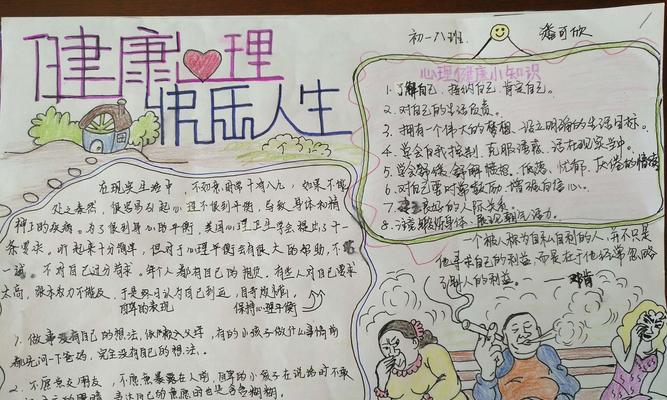 健康心理
快乐人生
初一八班
潘可欣
心理健康小知识
1.了解自己,接纳自己,肯定自己。
2.对自己的生活负责。
3.拥有一个伟大的梦想,设立明确的生活目标。
4.学会自我控制,克服诱惑,活在现实当中。
5.学会舒缓舒解愤怒、低落、忧郁、厌倦的情绪
6.对自己要时常鼓励,增强自信心。
7.良好的人际关系。
8.锻炼身体,展现朝气活力。
一个被人称为自私自利的人,并不只是
他寻求自己的利益,而是在于他经常忽略
了别人的利益。——邓肯
在现实生活中,不如意的事十有八九,如果不能
处之泰然,很容易引起心理不平衡,导致身体和精
神上的疾病。为了做到身心的平衡,美国心理卫生学会提出了十
一条要求。听起来十分简单,但对于心理平衡会有很大的帮助,不
对自己过分苛求,每个人都有自己的抱负,有些人对自己要求
太高,根本力不能及,于是终日认为自己倒运,自寻烦恼。
自卑的表现
保持心理平衡
1.做事没有自己的想法,依赖父母,有的小孩子做什么事情前
都先问一下爸妈,完全没有自己的想法。
2.不愿意交朋友,不愿意暴露在人前,自卑的小孩子在说话时不敢